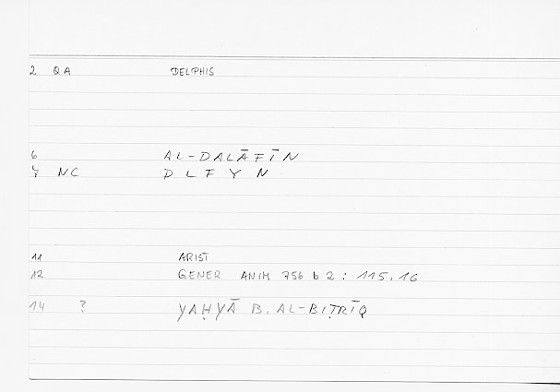 2 QA DELPHIS
6 AL-DALĀFĪN
7 NC D L F Y N
11 ARIST
12 GENER ANIM 756 b 2 : 115,16
14 ? YAḤYĀ B. AL-BIṬRĪQ